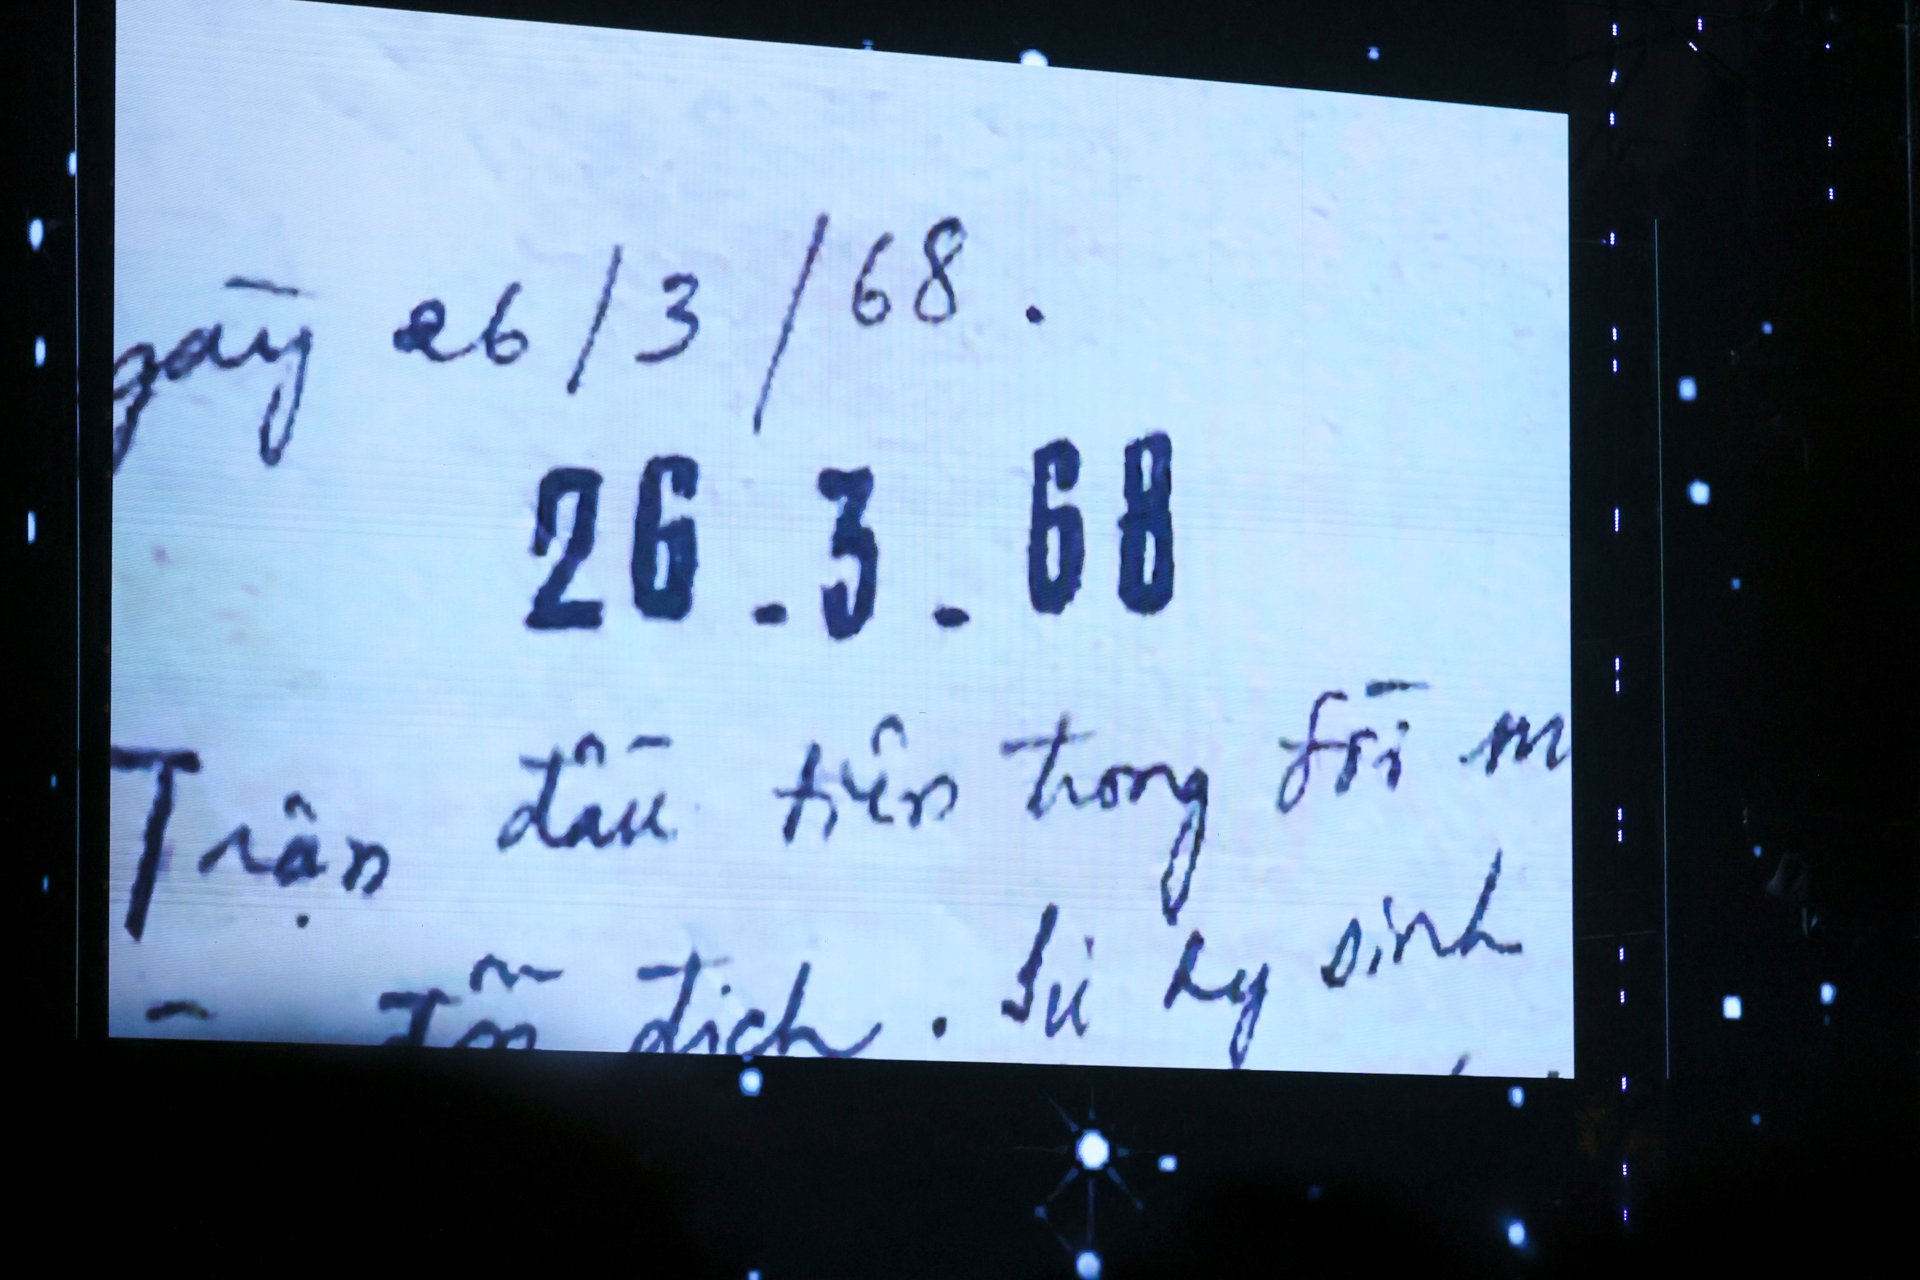 gày 26/3/68.
26.3.68
Trận đầu tiên trong đời m
địch. Sự hy sinh